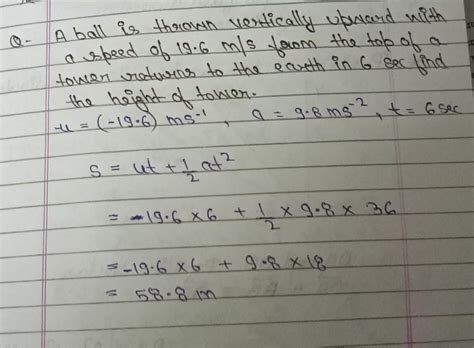 Q- A ball is thrown vertically upward with
a speed of 19.6 m/s from the top of a
tower returns to the earth in 6 sec find
the height of tower.
u = (-19.6) ms⁻¹, a = 9.8 ms⁻², t = 6 sec
s = ut + 1/2 at²
= -19.6 × 6 + 1/2 × 9.8 × 36
= -19.6 × 6 + 9.8 × 18
= 58.8 m